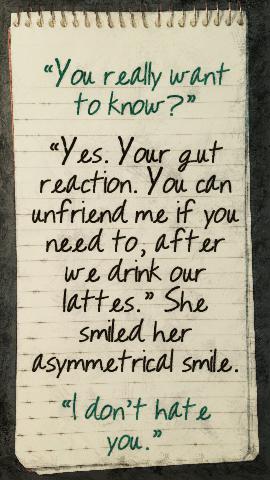 “You really want
to know?”
“Yes. Your gut
reaction. You can
unfriend me if you
need to, after
we drink our
lattes.” She
smiled her
asymmetrical smile.
“I don't hate
you.”